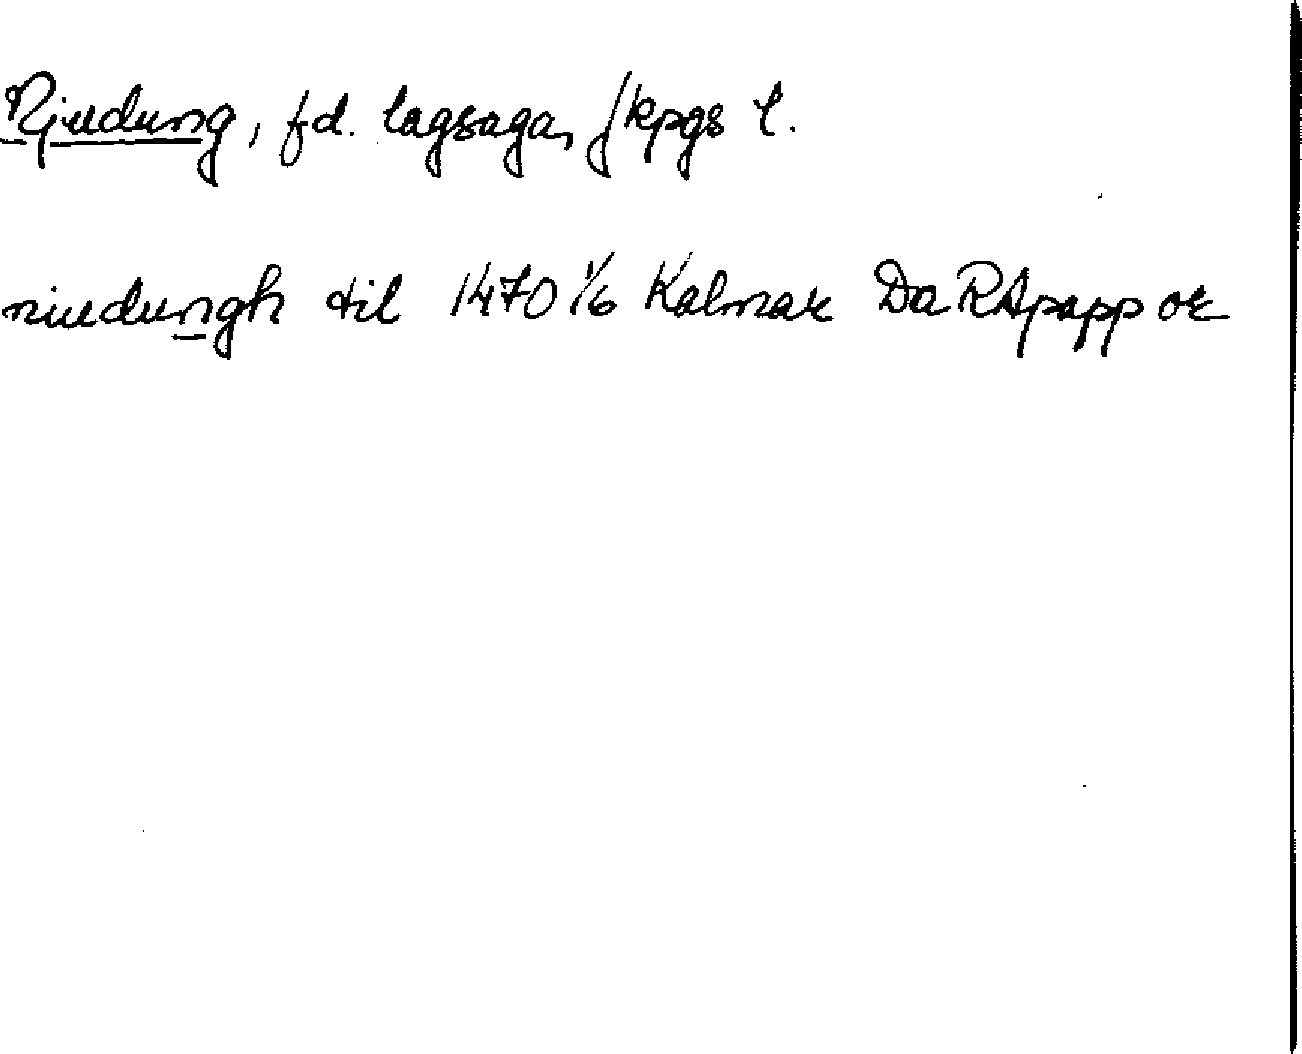 Njudung, fd. lagsaga, Jkpgs l.
niudungh til 1470 1/6 Kalmar Da RA papp or